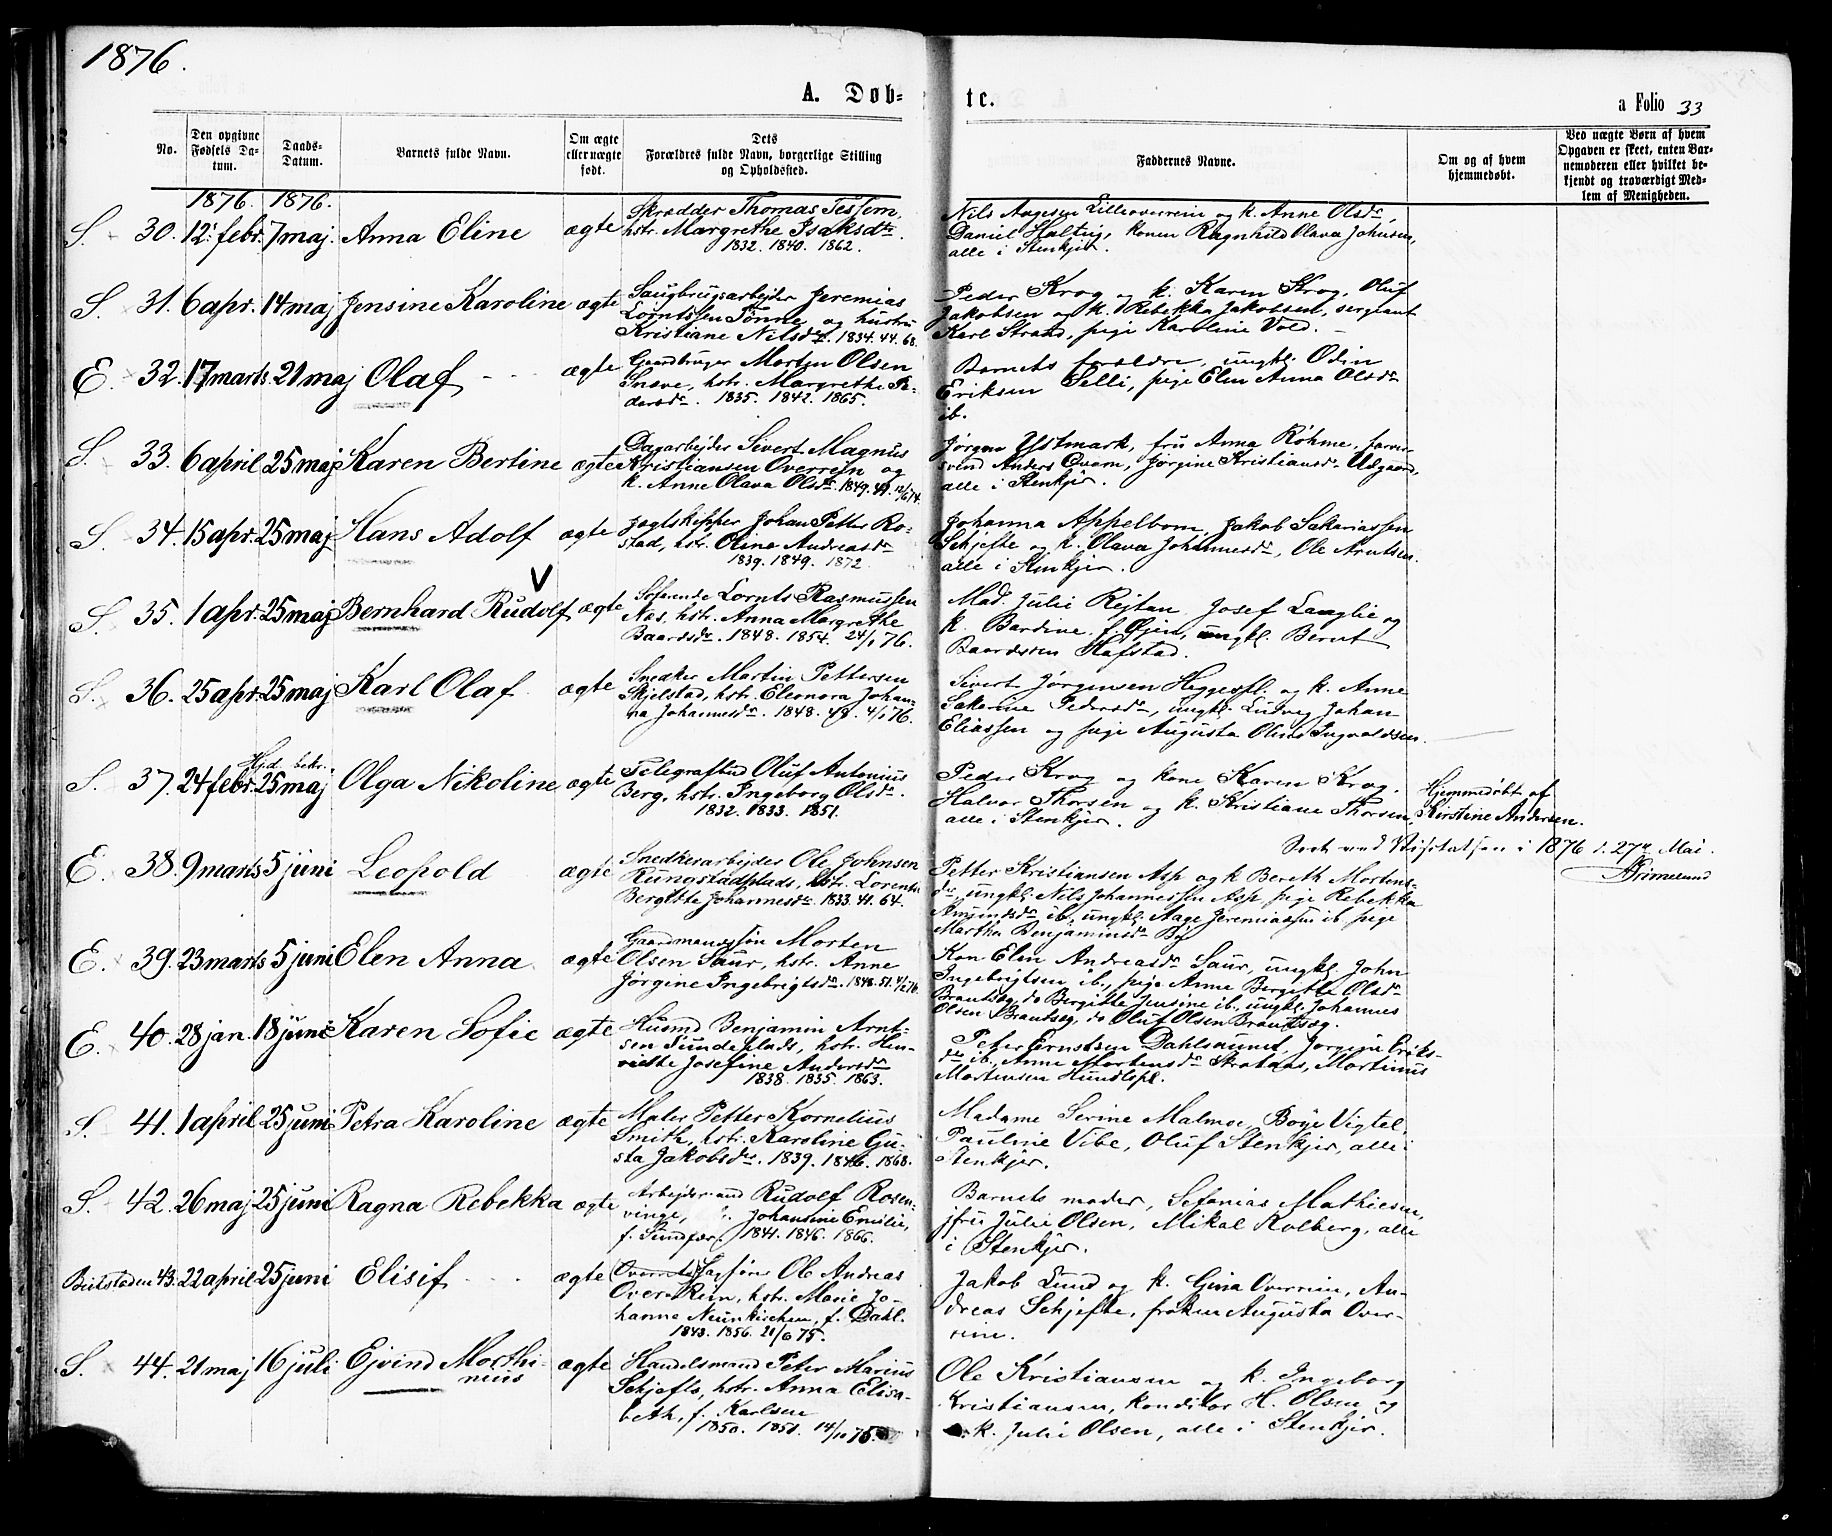 1876.
A. Døb-
te.
a Folio 33
No.
Den opgivne
Fødsels Da-
tum.
Daabs-
Datum.
Barnets fulde Navn.
Om ægte
eller uægte
født.
Dets
Forældres fulde Navn, borgerlige Stilling
og Opholdssted.
Faddernes Navne.
Om og af hvem
hjemmedøbt.
Ved uægte Børn af hvem
Opgaven er skeet, enten Bar-
nemoderen eller hvilket be-
kjendt og troværdigt Med-
lem af Menigheden.
1876. 1876.
S. 30. 12. febr. 7 maj. Anna Eline ægte
Skrædder Thomas Tessem,
hstr. Margrethe Isaksdtr.
1832. 1840. 1862.
Nils Aagesen Lilleoverrein og k. Anne Olsdr,
Daniel Haltug, konen Ragnhild Olava Johnsen,
alle i Stenkjer.
S. 31. 6 apr. 14 maj Jensine Karoline ægte
Saugbrugsarbejder Jeremias
Lorntssen Tønne og hustru
Kristiane Nilsdr. 1834. 44. 68.
Peder Krog og k. Karen Krog, Oluf
Jakobsen og k. Rebekka Jakobsen, sergeant
Karl Strand, pige Karoline Vold.
E. 32. 17 marts. 21 maj Olaf ægte
Gaardbruger Morten Olsen
Snøve, hstr. Margrethe Pe-
dersdr. 1835. 1842. 1865.
Barnets forældre, ungkl. Odin
Eriksen Selli, pige Elen Anna Olsdr
ib.
S. 33. 6 april 25 maj Karen Bertine ægte
Dagarbejder Sivert Magnus
Kristiansen Overrein og
k. Anne Olava Olsdr. 1849. 49. 12/6 74.
Jørgen Ystmark, fru Anna Røhme, farver-
svend Anders Qvam, Jørgine Kristiansdr Udgaard,
alle i Stenkjer.
S. 34. 15 apr. 25 maj Hans Adolf ægte
Jagtskipper Johan Petter Ro-
stad, hstr. Oline Andreasdr
1839. 1849. 1872.
Johanna Appelbom, Jakob Sakariassen
Schjefte og k. Olava Johannesdr, Ole Arntsen.
alle i Stenkjer.
V
S. 35. 1 apr. 25 maj Bernhard Rudolf ægte
Søfarende Lornts Rasmussen
Nas, hstr. Anna Margrethe
Baardsdr. 1848. 1854. 24/1 76.
Mad. Julie Rejtan, Josef Langlie og
k. Bardine f. Øjen, ungkl. Bernt
Baardssen Hafstad.
S. 36. 25 apr. 25 maj Karl Olaf ægte
Snedker Martin Pettersen
Skjelstad, hstr. Eleonora Johan-
na Johannesdr. 1848. 48. 4/1 76.
Sivert Jørgensen Heggesfl. og k. Anne
Sakarine Pedersdr, ungkl. Ludvig Johan
Eliassen og pige Augusta Oline Ingvaldsen.
Hjd. bekr.
S. 37. 24 febr. 25 maj Olga Nikoline ægte
Telegrafbud Oluf Antonius
Berg, hstr. Ingeborg Olsdr.
1832. 1833. 1851.
Peder Krog og kone Karen Krog.
Halvor Thorsen og k. Kristiane Thorsen,
alle i Stenkjer.
Hjemmedøbt af
Kirstine Andersen.
Seet ved Visitatsen i 1876 d. 27de Mai.
Grimelund
E. 38. 9 marts 5 juni Leopold ægte
Snedkerarbejder Ole Johnsen
Rungstadplads, hstr. Lorentse
Bergitte Johannesdr. 1833. 41. 64.
Petter Kristiansen Asp og k Bereth Mortens-
dr, ungkl. Nils Johannessen Asp, pige Rebekka
Amundsdr ib, ungkl. Aage Jeremiassen ib, pige
Martha Benjaminsdr Bøf
E. 39. 23 marts 5 juni Elen Anna ægte
Gaardmandssøn Morten
Olsen Saur, hstr. Anne
Jørgine Ingebrigtsdr. 1848. 51. 4/2 76.
Kon Elen Andreasdr Saur, ungkl. John
Ingebrigtsen ib., pige Anne Bergitte Olsdr
Brandsæg, do Bergitte Jensine ib. ungkl. Johannes
Olsen Brandsæg, do Oluf Olsen Brandsæg.
E. 40. 28 jan. 18 juni Karen Sofie ægte
Husmd Benjamin Arnt-
sen Sundeplads, hstr. Hen-
riette Josefine Andersdr
1838. 1835. 1863.
Peter Ernstsen Dahlsaund, Jørgine Eriks-
dr ib., Anne Mortensdr Strataas, Mortinus
Mortensen Hundspl.
S. 41. 1 april 25 juni Petra Karoline ægte
Maler Petter Kornelius
Smith, hstr. Karoline Gu-
sta Jakobsdr. 1839. 1846. 1868.
Madame Serine Malmoe, Boye Vigtel,
Pauline Vibe, Oluf Stenkjer, alle i
Stenkjer.
S. 42. 26 maj 25 juni Ragna Rebekka ægte
Arbejdsmand Rudolf Rosen-
vinge, Johansine Emilie,
f. Sundfær. 1841. 1846. 1866.
Barnets moder, Sefanias Mathiesen,
jfru Julie Olsen, Mikal Kolberg, alle
i Stenkjer.
Beitstaden 43. 22 april 25 juni Elisif ægte
Sagfører Ole Andreas
Over-Rein, hstr. Marie Jo-
hanne Neunkirchen, f. Dahl.
1843. 1856. 21/6 75.
Jakob Lund og k. Gina Overrein, An-
dreas Schjefte, frøken Augusta Over-
rein.
S. 44. 21 maj 16 juli Ejvind Morthi-
nius ægte
Handelsmand Peter Marius
Schjefte, hstr. Anna Elisa-
beth, f. Karlsen
1850. 1851. 14/10 75.
Ole Kristiansen og k. Ingeborg
Kristiansen, konditor H. Olsen og
k. Julie Olsen, alle i Stenkjer.